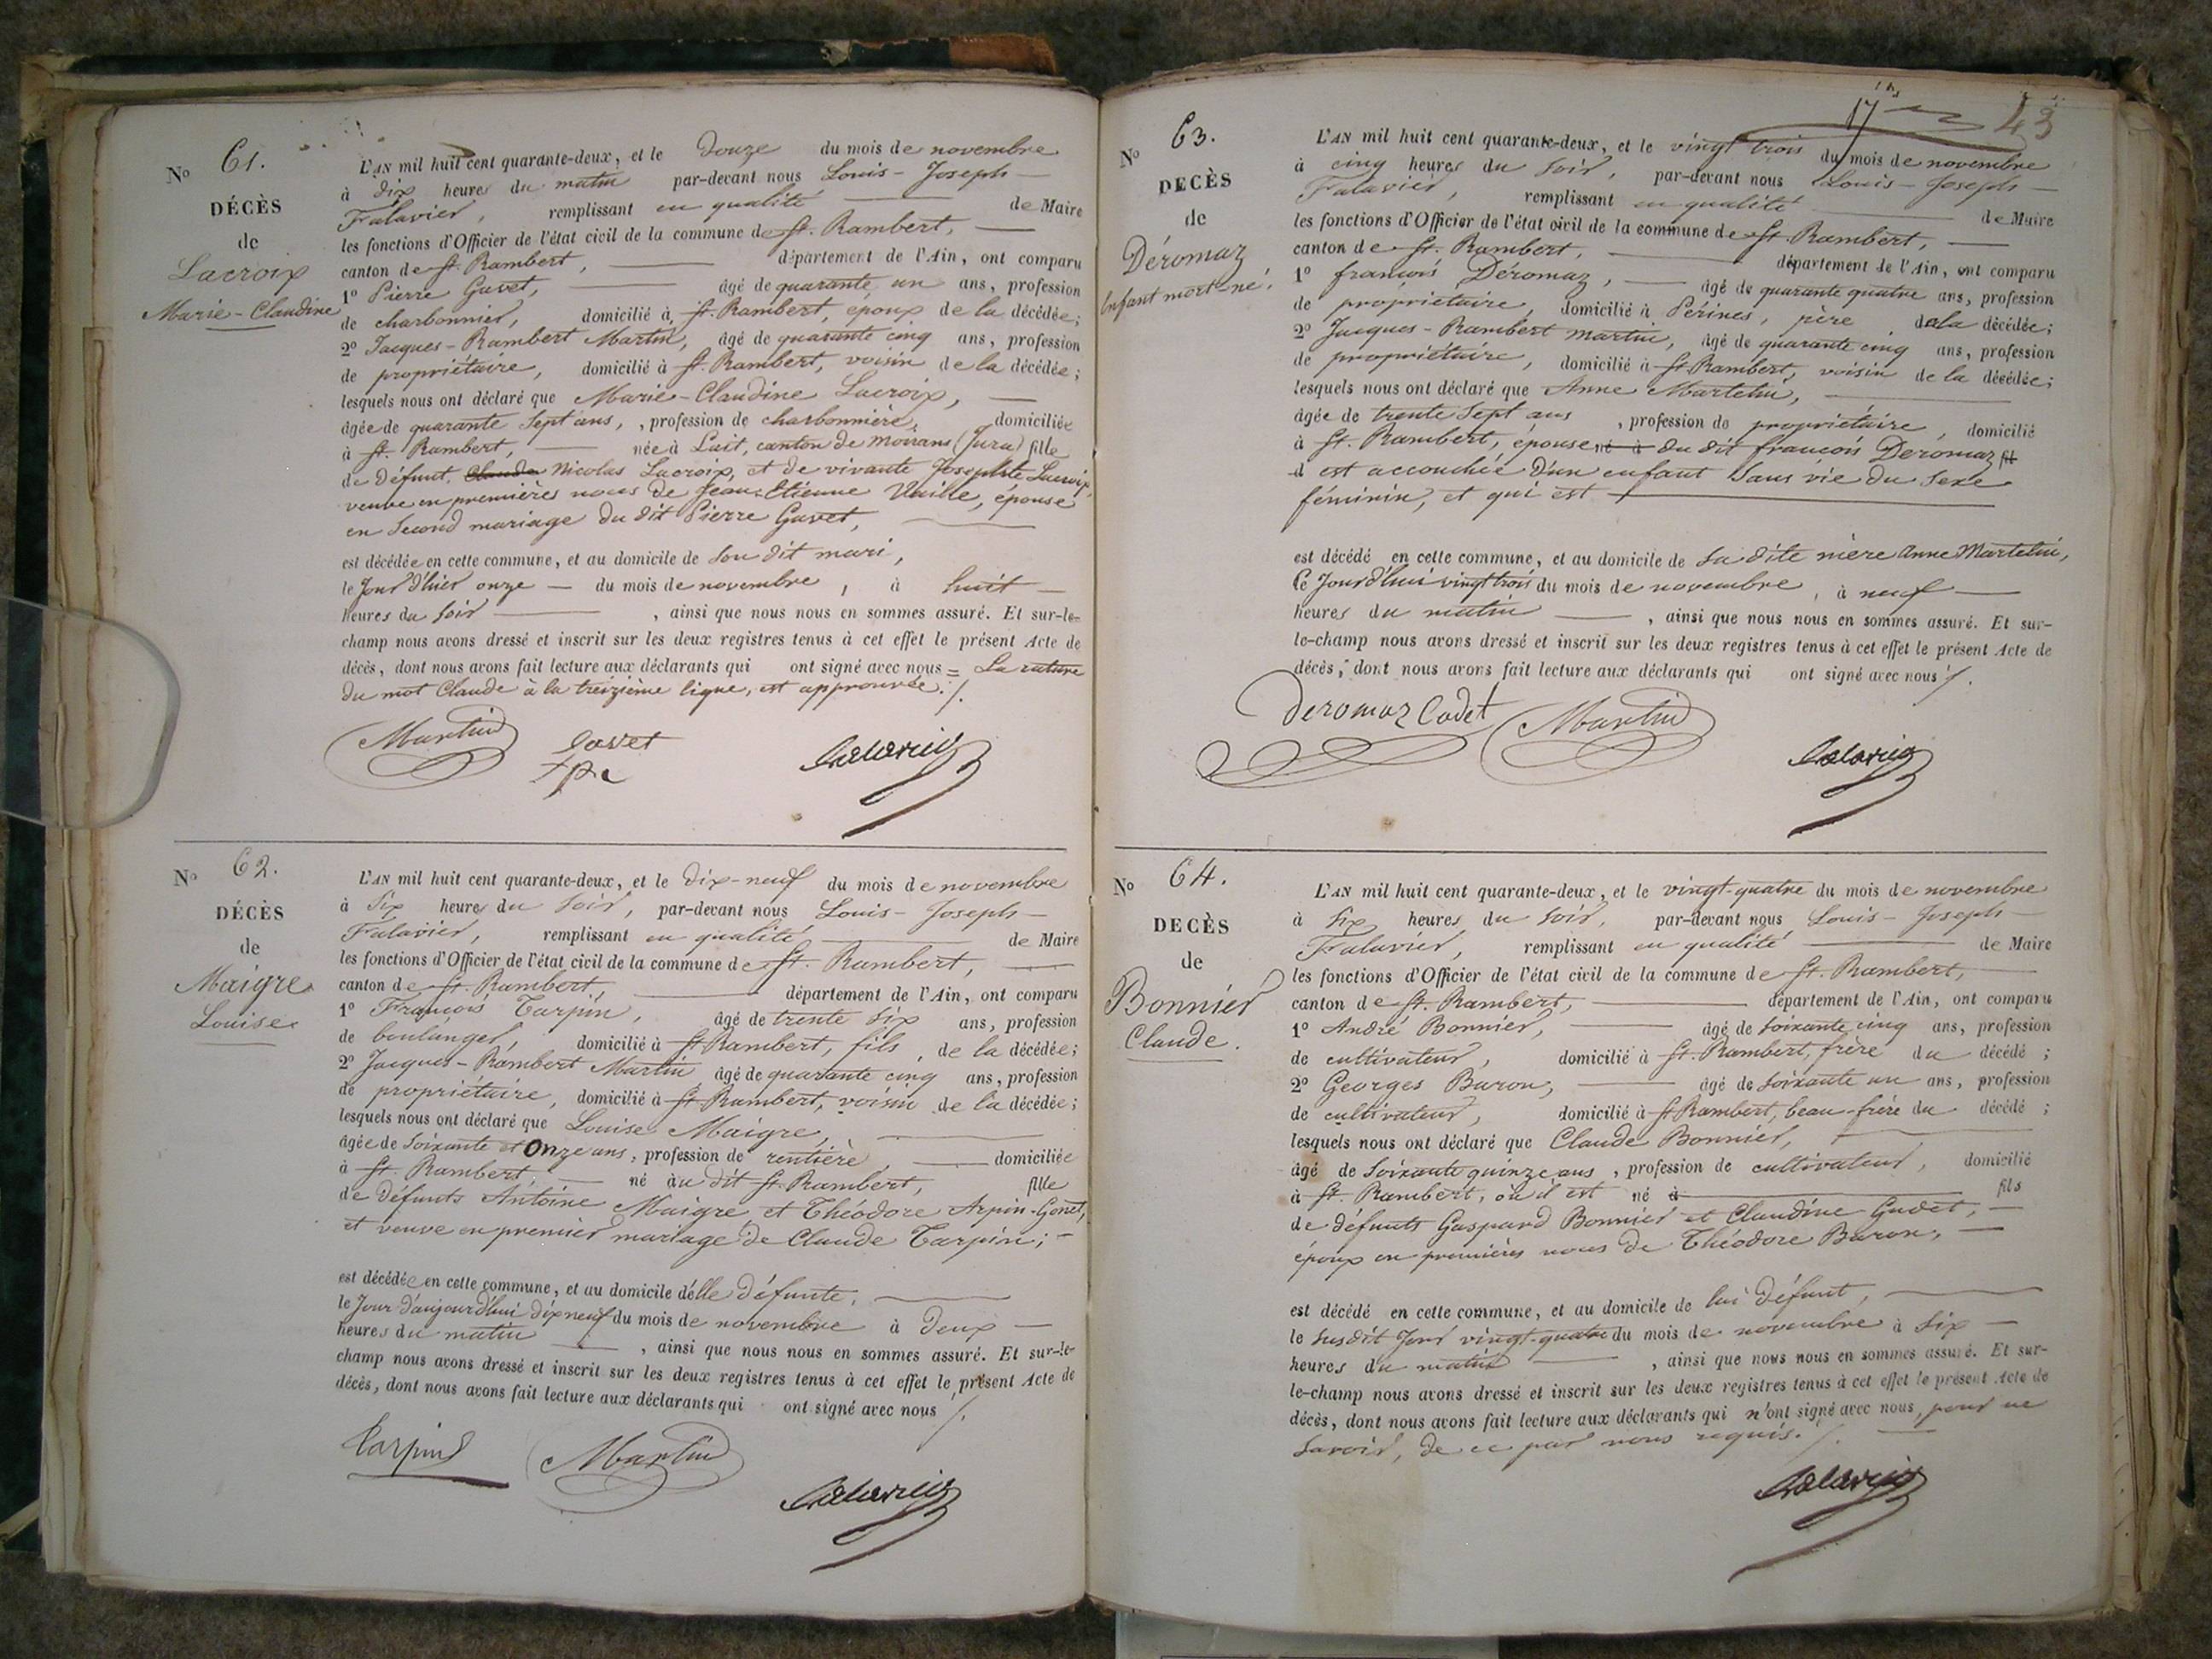 No 61.
DÉCÈS
de
Lacroix
Marie-Claudine
L'AN mil huit cent quarante-deux, et le douze du mois de novembre
à dix heures du matin par-devant nous Louis-Joseph
Falavier, remplissant en qualité de Maire
les fonctions d'Officier de l'état civil de la commune de St. Rambert,
canton de St. Rambert, département de l'Ain, ont comparu
1o Pierre Gavet, âgé de quarante un ans, profession
de charbonnier, domicilié à St. Rambert, époux de la décédée;
2o Jacques-Rambert Martin, âgé de quarante cinq ans, profession
de propriétaire, domicilié à St. Rambert, voisin de la décédée;
lesquels nous ont déclaré que Marie-Claudine Lacroix,
âgée de quarante sept ans, profession de charbonnière, domiciliée
à St. Rambert, née à Lait, canton de Moirans (Jura) fille
de défunt, Claude Nicolas Lacroix, et de vivante Josephte Lacroix,
veuve en premières noces de Jean Etienne Vuille, épouse
en second mariage du dit Pierre Gavet,
est décédée en cette commune, et au domicile de son dit mari,
le jour d'hier onze du mois de novembre, à huit
heures du soir, ainsi que nous nous en sommes assuré. Et sur-le-
champ nous avons dressé et inscrit sur les deux registres tenus à cet effet le présent Acte de
décès, dont nous avons fait lecture aux déclarants qui ont signé avec nous = La rature
du mot Claude à la treizième ligne, est approuvée. /.
Martin Gavet Falavier
No 62.
DÉCÈS
de
Maigre
Louise
L'AN mil huit cent quarante-deux, et le dix-neuf du mois de novembre
à six heures du soir, par-devant nous Louis-Joseph
Falavier, remplissant en qualité de Maire
les fonctions d'Officier de l'état civil de la commune de St. Rambert,
canton de St. Rambert, département de l'Ain, ont comparu
1o François Tarpin, âgé de trente six ans, profession
de boulanger, domicilié à St Rambert, fils, de la décédée;
2o Jacques-Rambert Martin âgé de quarante cinq ans, profession
de propriétaire, domicilié à St. Rambert, voisin de la décédée;
lesquels nous ont déclaré que Louise Maigre,
âgée de soixante et Onze ans, profession de rentière, domiciliée
à St. Rambert, né au dit St. Rambert, fille
de défunts Antoine Maigre et Théodore Arpin-Gonet,
et veuve en premier mariage de Claude Tarpin;
est décédée en cette commune, et au domicile d'elle défunte,
le jour d'aujourd'hui dix neuf du mois de novembre à deux
heures du matin, ainsi que nous nous en sommes assuré. Et sur-le-
champ nous avons dressé et inscrit sur les deux registres tenus à cet effet le présent Acte de
décès, dont nous avons fait lecture aux déclarants qui ont signé avec nous /.
Tarpin Martin Falavier
17 43
No 63.
DÉCÈS
de
Déromaz
Enfant mort-né.
L'AN mil huit cent quarante-deux, et le vingt trois du mois de novembre
à cinq heures du soir, par-devant nous Louis-Joseph
Falavier, remplissant en qualité de Maire
les fonctions d'Officier de l'état civil de la commune de St. Rambert,
canton de St. Rambert, département de l'Ain, ont comparu
1o françois Déromaz, âgé de quarante quatre ans, profession
de propriétaire, domicilié à Sérines, père de la décédée;
2o Jacques-Rambert Martin, âgé de quarante cinq ans, profession
de propriétaire, domicilié à St Rambert, voisin de la décédée;
lesquels nous ont déclaré que Anne Martelin,
âgée de trente sept ans, profession de propriétaire, domicilié
à St. Rambert, épouse né à du dit françois Deromaz fil
d est accouchée d'un enfant sans vie du sexe
féminin, et qui est
est décédé en cette commune, et au domicile de sa dite mère Anne Martelin,
le Jourd'hui vingt trois du mois de novembre, à neuf
heures du matin, ainsi que nous nous en sommes assuré. Et sur-
le-champ nous avons dressé et inscrit sur les deux registres tenus à cet effet le présent Acte de
décès, dont nous avons fait lecture aux déclarants qui ont signé avec nous /.
Deromaz Cadet Martin Falavier
No 64.
DECÈS
de
Bonnier
Claude.
L'AN mil huit cent quarante-deux, et le vingt-quatre du mois de novembre
à six heures du soir, par-devant nous Louis-Joseph
Falavier, remplissant en qualité de Maire
les fonctions d'Officier de l'état civil de la commune de St. Rambert,
canton de St. Rambert, département de l'Ain, ont comparu
1o André Bonnier, âgé de soixante cinq ans, profession
de cultivateur, domicilié à St. Rambert, frère du décédé;
2o Georges Baron, âgé de soixante un ans, profession
de cultivateur, domicilié à St Rambert, beau-frère du décédé;
lesquels nous ont déclaré que Claude Bonnier,
âgé de soixante quinze ans, profession de cultivateur, domicilié
à St. Rambert, où il est né à fils
de défunts Gaspard Bonnier et Claudine Gudet,
époux en premières noces de Théodore Baron,
est décédé en cette commune, et au domicile de lui défunt,
le susdit jour vingt-quatre du mois de novembre à six
heures du matin, ainsi que nous nous en sommes assuré. Et sur-
le-champ nous avons dressé et inscrit sur les deux registres tenus à cet effet le présent Acte de
décès, dont nous avons fait lecture aux déclarants qui n'ont signé avec nous, pour ne
savoir, de ce par nous requis. /.
Falavier